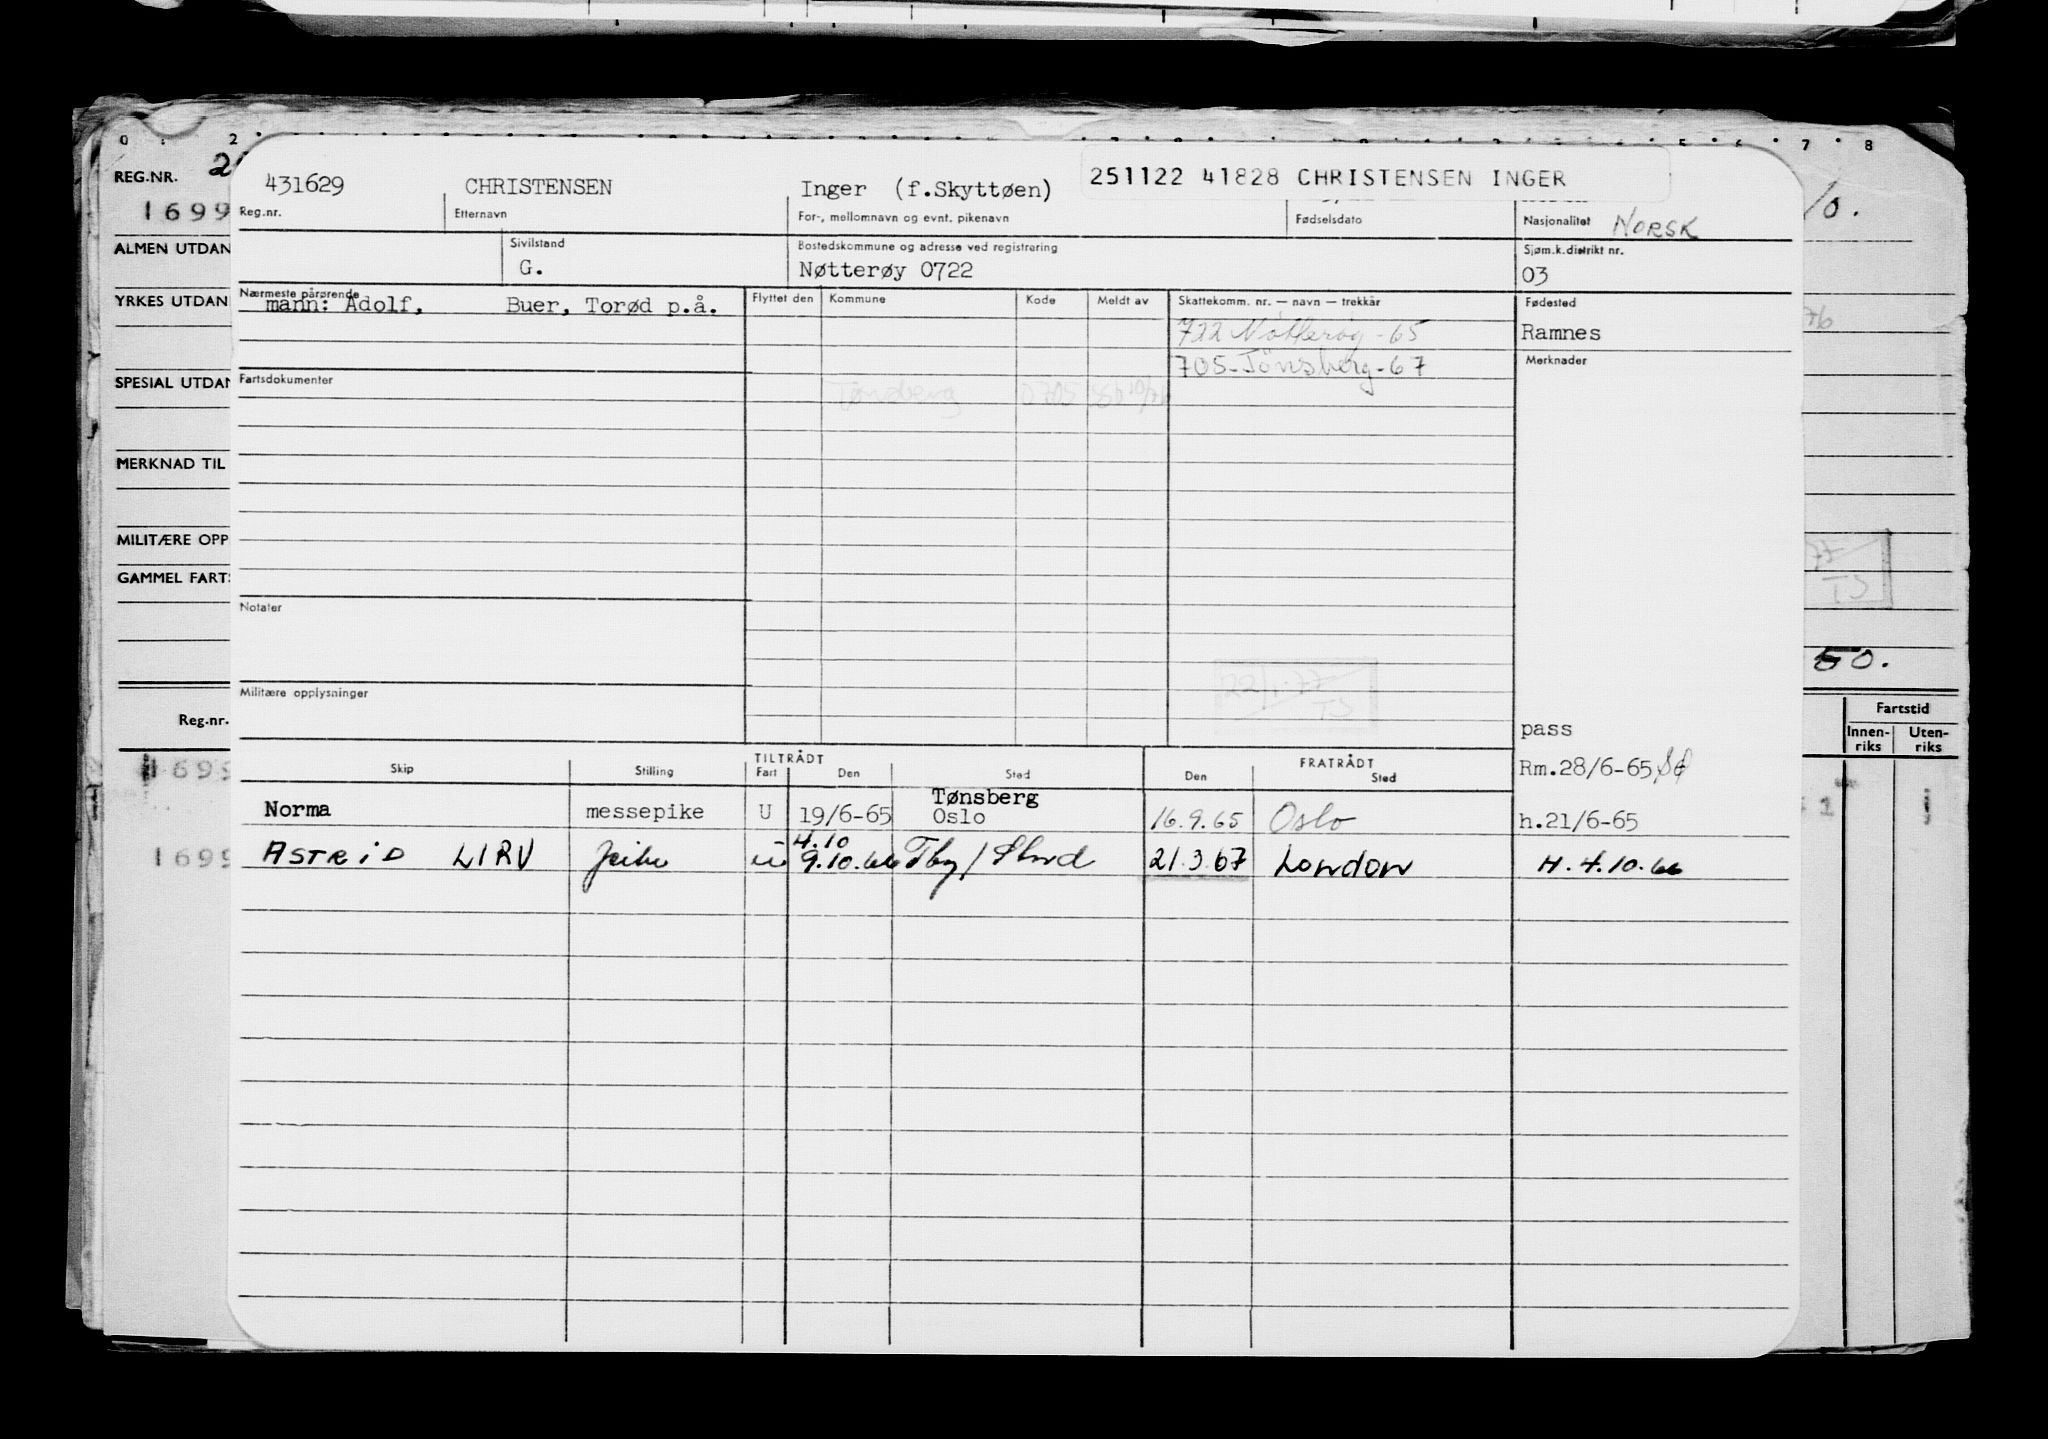 0 2 7 8
REG.NR. 2
1699
ALMEN UTDAN
YRKES UTDAN
SPESIAL UTDAN
MERKNAD TIL
MILITÆRE OPP
GAMMEL FARTS
Reg.nr.
1699
1699
431629 CHRISTENSEN Inger (f.Skyttøen) 251122 41828 CHRISTENSEN INGER
Reg.nr. Etternavn For-, mellomnavn og evnt. pikenavn Fødselsdato Nasjonalitet NORSK
Sivilstand Bostedskommune og adresse ved registrering Sjøm.k.distrikt nr.
G. Nøtterøy 0722 03
Nærmeste pårørende Flyttet den Kommune Kode Meldt av Skattekomm. nr. — navn — trekkår Fødested
mann: Adolf, Buer, Torød p.å.
722 Nøtterøy - 65 Ramnes
705 - Tönsberg - 67 Merknader
Fartsdokumenter
Tønsberg 0705
Notater
22/1-77
TS
Militære opplysninger
pass
Skip Stilling TILTRÅDT Fart Den Sted FRATRÅDT Den Sted
Rm.28/6-65
Norma messepike U 19/6-65 Tønsberg Oslo 16.9.65 Oslo h.21/6-65
ASTRID LIRV U 4.10 9.10.66 Tbg / 21.3.67 London H. 4.10.66
10.
76
77
TS
50.
Fartstid
Innen-riks Uten-riks